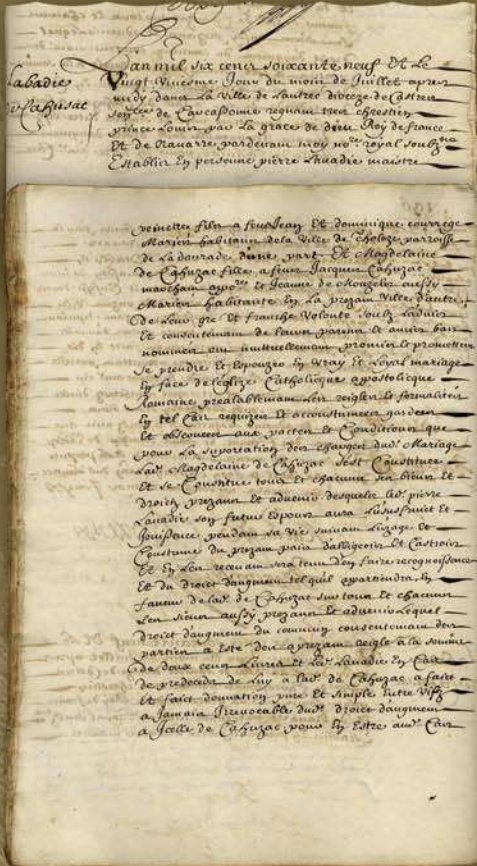 Labadie
de Cahusac
Lan mil six cens soixante neuf Et Le
Vingt Uniesme Jour du mois de Juillet apres
midy dans La Ville de Lautrec dioceze de Castres
sen[ce] de Carcassonne regnant tres chrestien
prince Louis par La grace de dieu Roy de france
Et de Navarre pardevant moy no[re] royal soubz[ne]
Establis En personne pierre Labadie maistre
peinctre filz a feus Jean Et dominique courrege
Mariés habitans dela Ville de tholoze parroisse
de La daurade dune part Et Magdelaine
de Cahuzac fille a feus Jacques Cahuzac
marchant Et Jeanne de Mouzelis aussy
Mariés habitante En La prezant Ville dautre
de Leur gre et franche Volonte soubz Ladvis
Et consentemant de leurs parens Et amis bas
nommés ont mutuellemant promis Et promettent
se prendre Et Espouzer En Vray Et Loyal mariage
En face de leglize Catholicque appostolicque
Romaine prealablemant Les reigles Et formalités
En tel Cas requizes Et accoustumees gardees
Et observees aux pactes Et Conditions que
pour La suportation des charges dud. Mariage
Lad. Magdelaine de Cahuzac sest Constituee
Et se Constitue tous Et chacuns ses biens Et
droicts prezans Et advenir desquels led. pierre
Labadie son futur Espoux aura Lusufruict Et
Jouissance pendant sa Vie suivant Luzage Et
Coustume du prezant païs dalbigeois Et Castrois
Et En Les recevant sera tenu den faire recognoissance
Et du droict daugment tel quil appartiendra En
faveur de lad. de Cahuzac sur tous Et chacuns
Les siens aussy prezans Et advenir Lequel
droict daugment du commun consentemant des
parties a Este des a prezant reigle a la somme
de deux cens Livres Et Led. Labadie En Cas
de predeces de Luy a lad. de Cahuzac a faict
Et faict donnation pure Et simple Entre Vifz
a Jamais Irrevocable dud. droict daugment
a Jcelle de Cahuzac pour En Estre aud. Cas